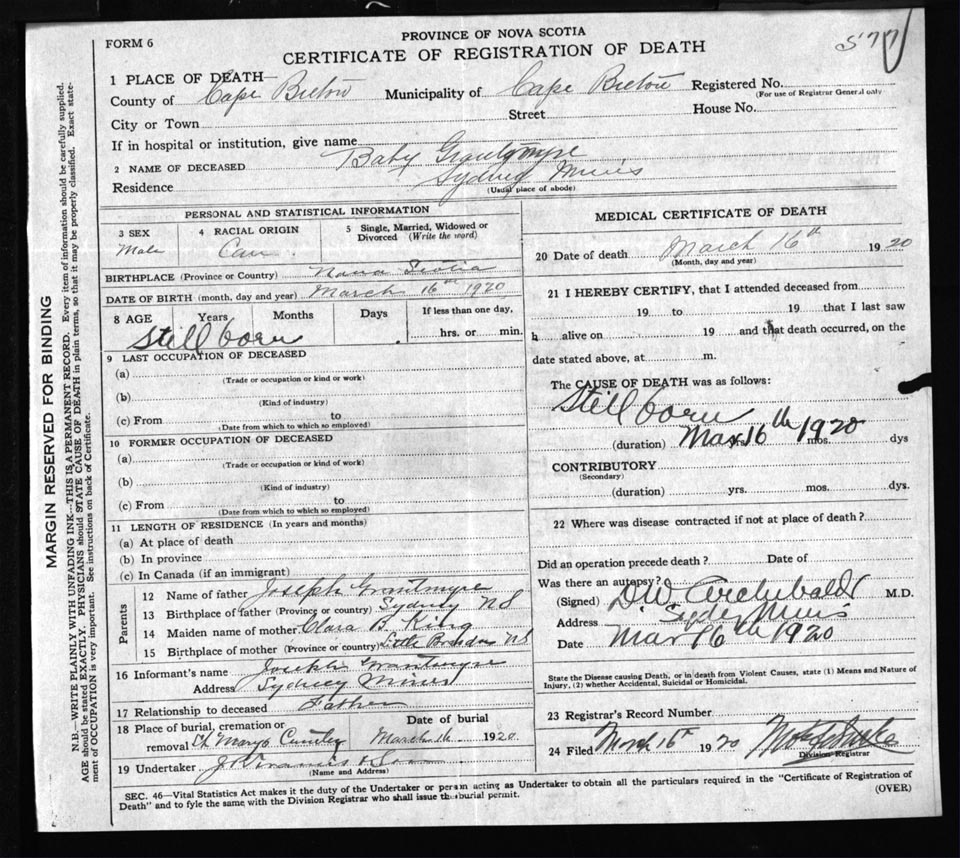 FORM 6
PROVINCE OF NOVA SCOTIA
577
CERTIFICATE OF REGISTRATION OF DEATH
1 PLACE OF DEATH—
County of Cape Breton Municipality of Cape Breton Registered No.
(For use of Registrar General only
City or Town Street House No.
If in hospital or institution, give name
2 NAME OF DECEASED Baby Grantmyre
Residence Sydney Mines
(Usual place of abode)
PERSONAL AND STATISTICAL INFORMATION
3 SEX 4 RACIAL ORIGIN 5 Single, Married, Widowed or
Divorced (Write the word)
Male Can
BIRTHPLACE (Province or Country) Nova Scotia
DATE OF BIRTH (month, day and year) March 16th 1920
8 AGE Years Months Days If less than one day,
Still born hrs. or min.
9 LAST OCCUPATION OF DECEASED
(a)
(Trade or occupation or kind or work)
(b)
(Kind of industry)
(c) From to
(Date from which to which so employed)
10 FORMER OCCUPATION OF DECEASED
(a)
(Trade or occupation or kind of work)
(b)
(Kind of industry)
(c) From to
(Date from which to which so employed)
11 LENGTH OF RESIDENCE (In years and months)
(a) At place of death
(b) In province
(c) In Canada (if an immigrant)
Parents
12 Name of father Joseph Grantmyre
13 Birthplace of father (Province or country) Sydney NS
14 Maiden name of mother Clara B. King
15 Birthplace of mother (Province or country) Little Bras d'or NS
16 Informant's name Joseph Grantmyre
Address Sydney Mines
17 Relationship to deceased Father
18 Place of burial, cremation or Date of burial
removal St Marys Cemetery March 16 1920
19 Undertaker & Son
(Name and Address)
MEDICAL CERTIFICATE OF DEATH
20 Date of death March 16th 1920
(Month, day and year)
21 I HEREBY CERTIFY, that I attended deceased from
19 to 19 that I last saw
h alive on 19 and that death occurred, on the
date stated above, at m.
The CAUSE OF DEATH was as follows:
Still born
(duration) Mar 16th 1920 mos. dys
CONTRIBUTORY
(Secondary)
(duration) yrs. mos. dys.
22 Where was disease contracted if not at place of death?
Did an operation precede death? Date of
Was there an autopsy?
(Signed) DW Archibald M.D.
Address Sydney Mines
Date Mar 16th 1920
State the Disease causing Death, or in death from Violent Causes, state (1) Means and Nature of
Injury, (2) whether Accidental, Suicidal or Homicidal.
23 Registrar's Record Number
24 Filed March 16th 1920
Division Registrar
SEC. 46—Vital Statistics Act makes it the duty of the Undertaker or person acting as Undertaker to obtain all the particulars required in the "Certificate of Registration of
Death" and to fyle the same with the Division Registrar who shall issue the burial permit.
(OVER)
MARGIN RESERVED FOR BINDING
N.B.—WRITE PLAINLY WITH UNFADING INK—THIS IS A PERMANENT RECORD. Every item of information should be carefully supplied.
AGE should be stated EXACTLY. PHYSICIANS should STATE CAUSE OF DEATH in plain terms, so that it may be properly classified. Exact state-
ment of OCCUPATION is very important. See instructions on back of Certificate.